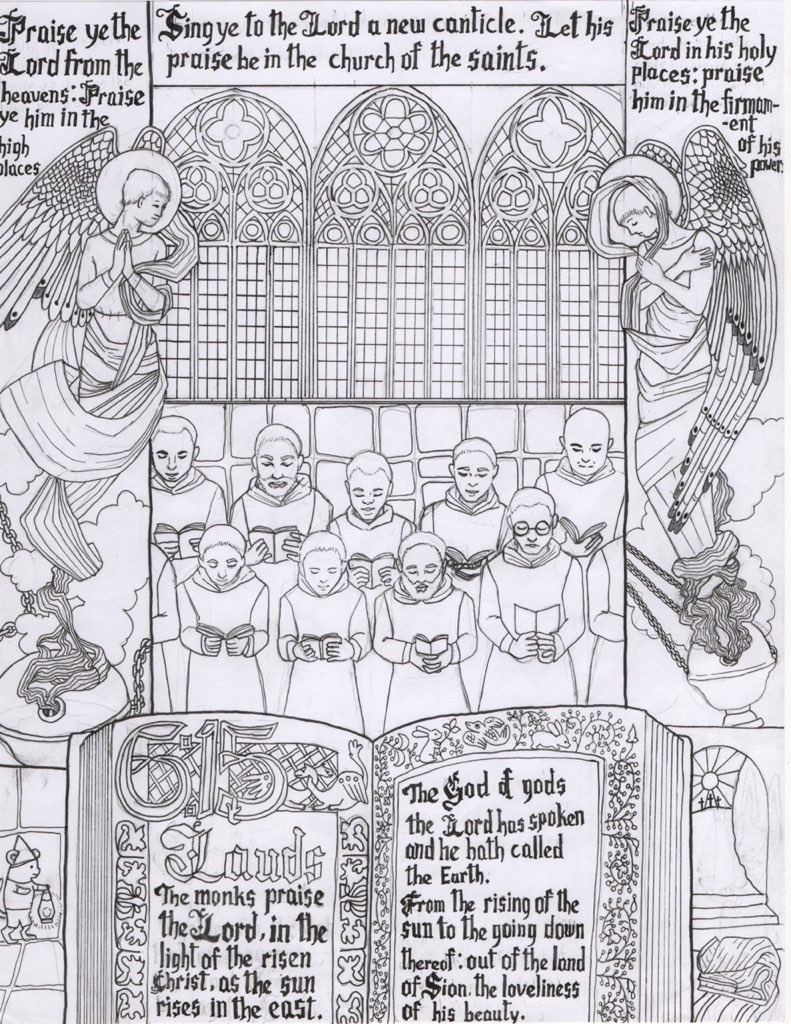 Praise ye the
Lord from the
heavens: Praise
ye him in the
high
places
Sing ye to the Lord a new canticle. Let his
praise be in the church of the saints.
Praise ye the
Lord in his holy
places: praise
him in the firmam-
-ent
of his
power
6:15
Lauds
The monks praise
the Lord, in the
light of the risen
Christ, as the sun
rises in the east.
The God of gods
the Lord has spoken
and he hath called
the Earth.
From the rising of the
sun to the going down
thereof: out of the land
of Sion the loveliness
of his beauty.